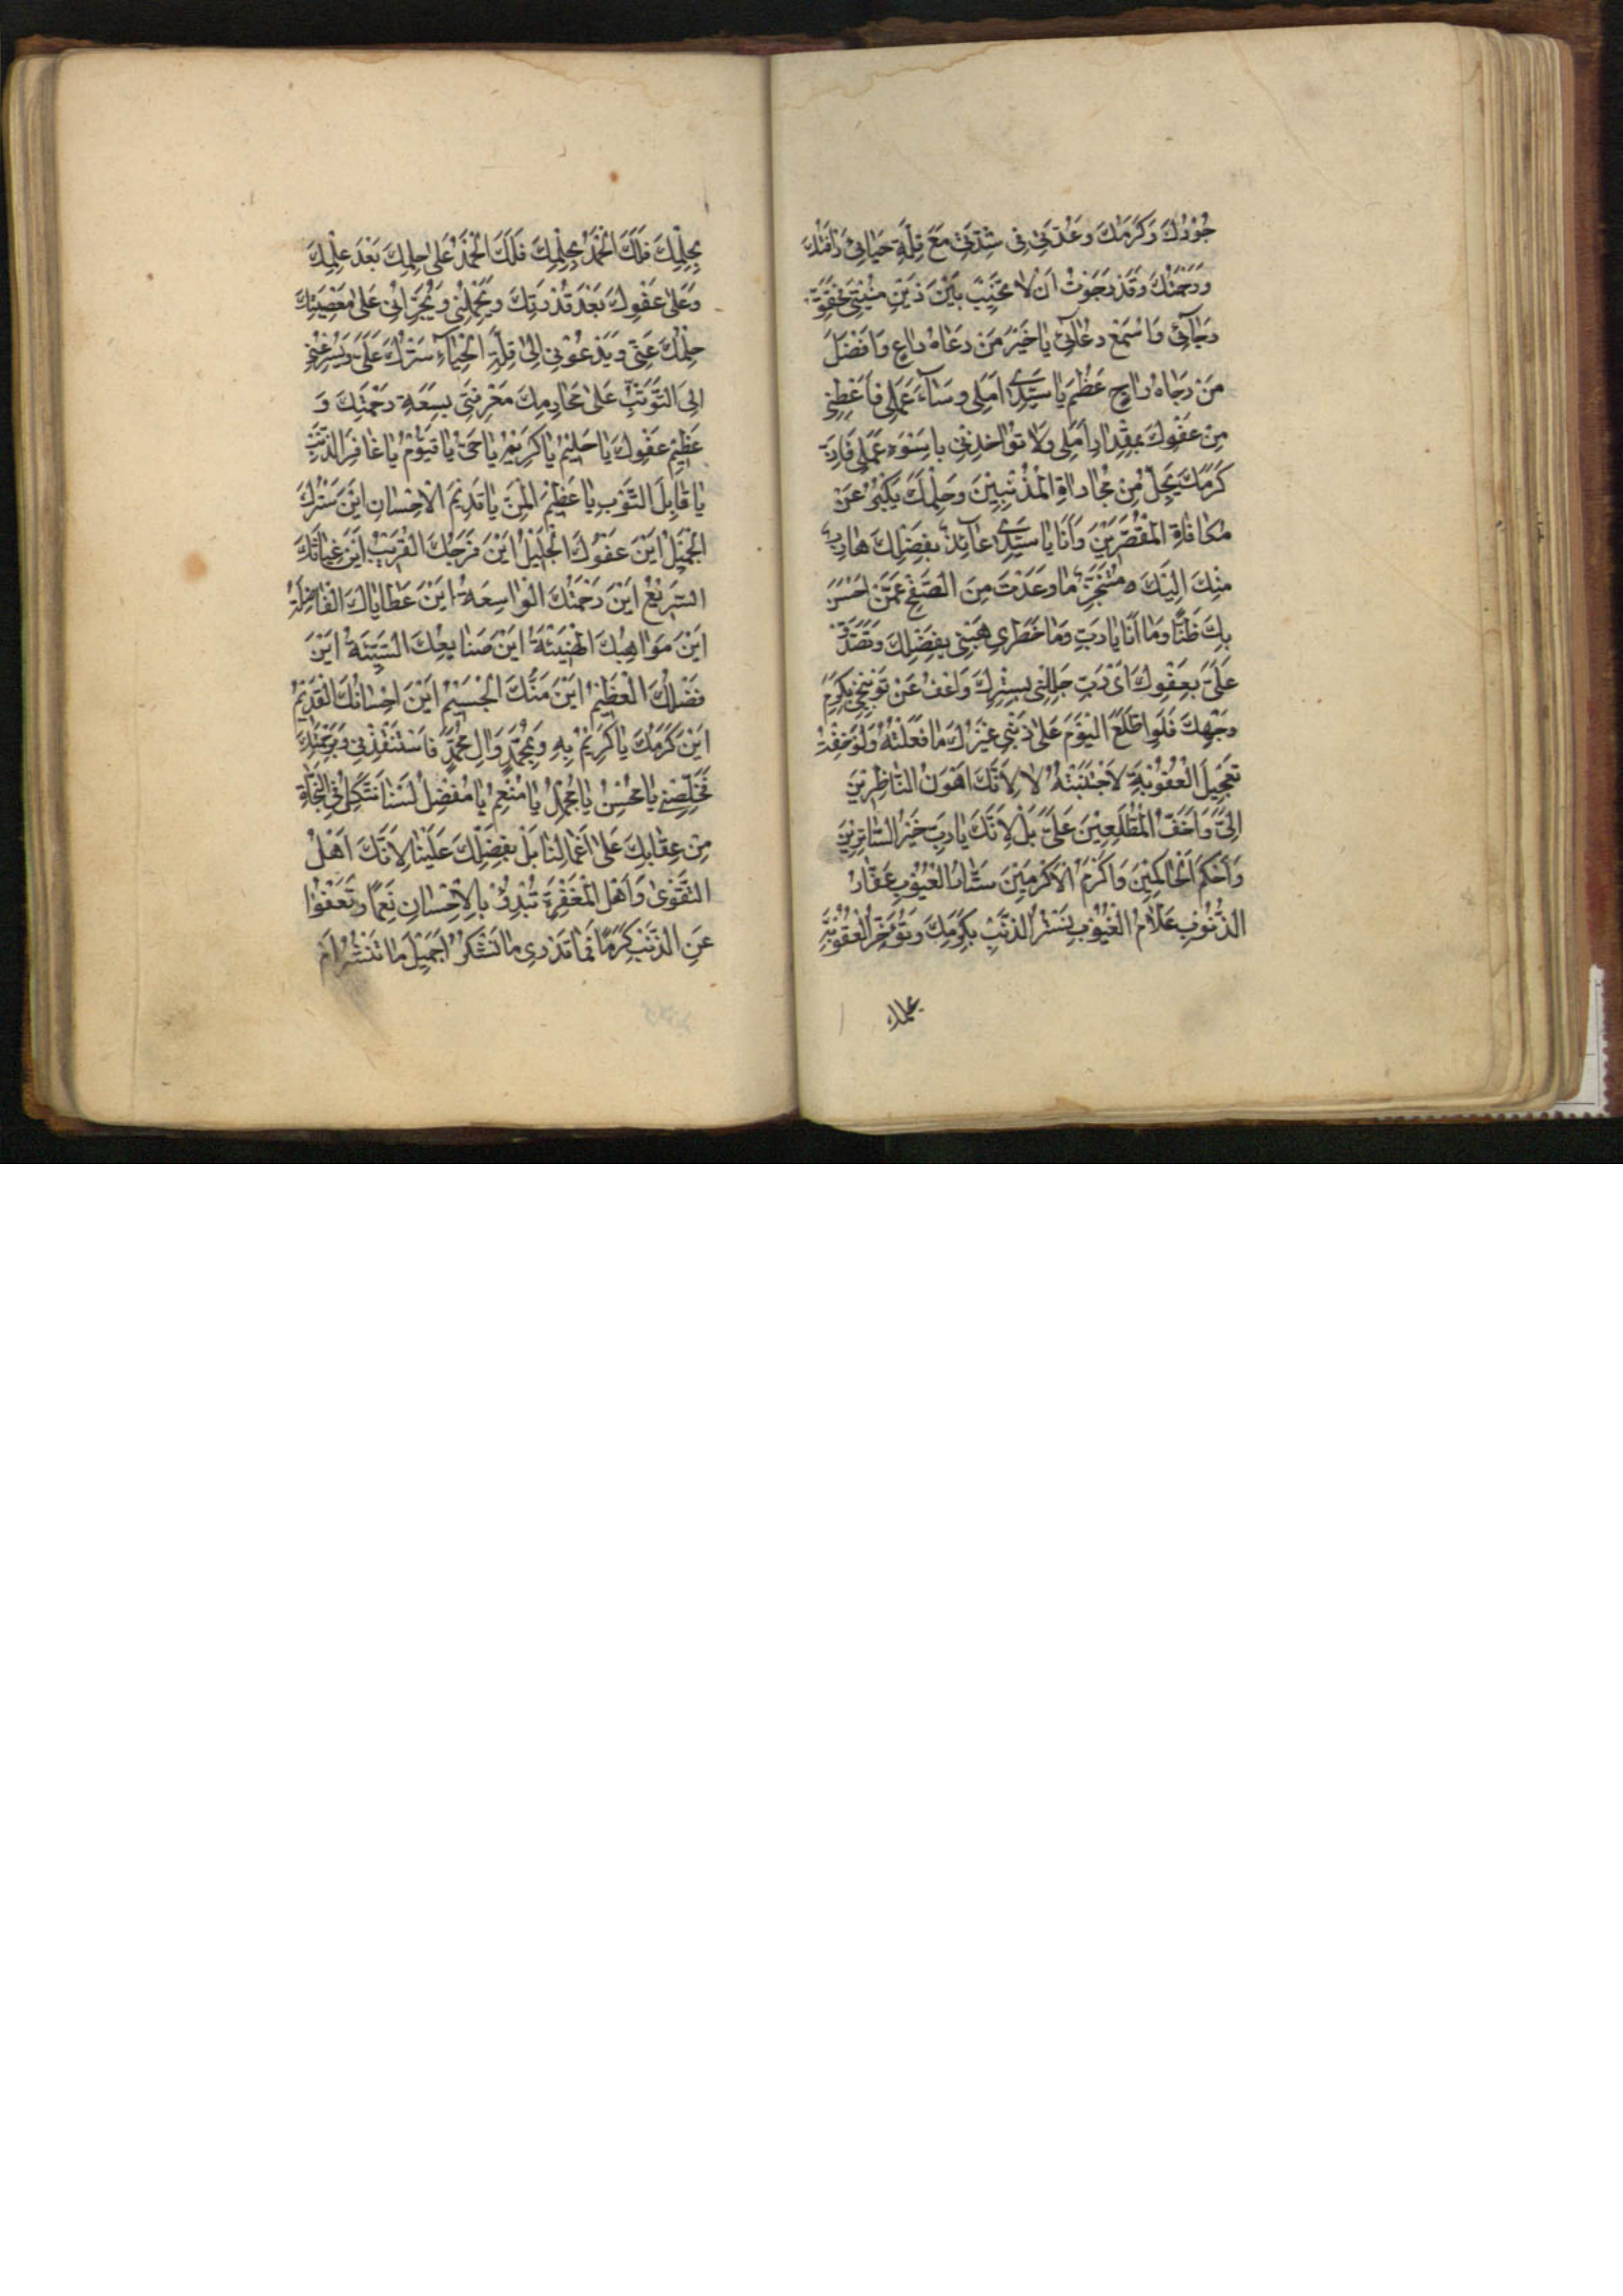 جُوْدُكَ وَكَرَمُكَ وَعُدَّتِي فِي شِدَّتِي مَعَ قِلَّةِ حَيَائِي رَأْفَتُكَ
وَرَحْمَتُكَ وَقَدْ رَجَوْتُ اَنْ لَا تُخَيِّبَ بَيْنَ ذَيْنِ مُنْيَتِي فَحَقِّقْ
رَجَائِي وَاسْمَعْ دُعَائِي يَا خَيْرَ مَنْ دَعَاهُ دَاعٍ وَاَفْضَلَ
مَنْ رَجَاهُ رَاجٍ عَظُمَ يَا سَيِّدِي اَمَلِي وَسَاءَ عَمَلِي فَاَعْطِنِي
مِنْ عَفْوِكَ بِمِقْدَارِ اَمَلِي وَلَا تُؤَاخِذْنِي بِاَسْوَءِ عَمَلِي فَاِنَّ
كَرَمَكَ يَجِلُّ مِنْ مُجَازَاةِ الْمُذْنِبِيْنَ وَحِلْمَكَ يَكْبُرُ عَنْ
مُكَافَاةِ الْمُقَصِّرِيْنَ وَاَنَا يَا سَيِّدِي عَائِذٌ بِفَضْلِكَ هَارِبٌ
مِنْكَ اِلَيْكَ مُتَنَجِّزٌ مَا وَعَدْتَ مِنَ الصَّفْحِ عَمَّنْ اَحْسَنَ
بِكَ ظَنًّا وَمَا اَنَا يَا رَبِّ وَمَا خَطَرِي هَبْنِي بِفَضْلِكَ وَتَصَدَّقْ
عَلَيَّ بِعَفْوِكَ اَيْ رَبِّ جَلِّلْنِي بِسِتْرِكَ وَاعْفُ عَنْ تَوْبِيْخِي بِكَرَمِ
وَجْهِكَ فَلَوِ اطَّلَعَ الْيَوْمَ عَلَى ذَنْبِي غَيْرُكَ مَا فَعَلْتُهُ وَلَوْ خِفْتُ
تَعْجِيْلَ الْعُقُوْبَةِ لَاجْتَنَبْتُهُ لَا لِاَنَّكَ اَهْوَنُ النَّاظِرِيْنَ
اِلَيَّ وَاَخَفُّ الْمُطَّلِعِيْنَ عَلَيَّ بَلْ لِاَنَّكَ يَا رَبِّ خَيْرُ السَّاتِرِيْنَ
وَاَحْكَمُ الْحَاكِمِيْنَ وَاَكْرَمُ الْاَكْرَمِيْنَ سَتَّارُ الْعُيُوْبِ غَفَّارُ
الذُّنُوْبِ عَلَّامُ الْغُيُوْبِ تَسْتُرُ الذَّنْبَ بِكَرَمِكَ وَتُؤَخِّرُ الْعُقُوْبَةَ
بِحِلْمِكَ فَلَكَ الْحَمْدُ بِحِلْمِكَ فَلَكَ الْحَمْدُ عَلَى حِلْمِكَ بَعْدَ عِلْمِكَ
وَعَلَى عَفْوِكَ بَعْدَ قُدْرَتِكَ وَيَحْمِلُنِي وَيُجَرِّئُنِي عَلَى مَعْصِيَتِكَ
حِلْمُكَ عَنِّي وَيَدْعُوْنِي اِلَى قِلَّةِ الْحَيَاءِ سَتْرُكَ عَلَيَّ وَيُسْرِعُنِي
اِلَى التَّوَثُّبِ عَلَى مَحَارِمِكَ مَعْرِفَتِي بِسَعَةِ رَحْمَتِكَ وَ
عَظِيْمِ عَفْوِكَ يَا حَلِيْمُ يَا كَرِيْمُ يَا حَيُّ يَا قَيُّوْمُ يَا غَافِرَ الذَّنْبِ
يَا قَابِلَ التَّوْبِ يَا عَظِيْمَ الْمَنِّ يَا قَدِيْمَ الْاِحْسَانِ اَيْنَ سَتْرُكَ
الْجَمِيْلُ اَيْنَ عَفْوُكَ الْجَلِيْلُ اَيْنَ فَرَجُكَ الْقَرِيْبُ اَيْنَ غِيَاثُكَ
السَّرِيْعُ اَيْنَ رَحْمَتُكَ الْوَاسِعَةُ اَيْنَ عَطَايَاكَ الْفَاضِلَةُ
اَيْنَ مَوَاهِبُكَ الْهَنِيْئَةُ اَيْنَ صَنَايِعُكَ السَّنِيَّةُ اَيْنَ
فَضْلُكَ الْعَظِيْمُ اَيْنَ مَنُّكَ الْجَسِيْمُ اَيْنَ اِحْسَانُكَ الْقَدِيْمُ
اَيْنَ كَرَمُكَ يَا كَرِيْمُ بِهِ وَبِمُحَمَّدٍ وَاٰلِ مُحَمَّدٍ فَاسْتَنْقِذْنِي وَبِرَحْمَتِكَ
فَخَلِّصْنِي يَا مُحْسِنُ يَا مُجْمِلُ يَا مُنْعِمُ يَا مُفْضِلُ لَسْنَا نَتَّكِلُ فِي النَّجَاةِ
مِنْ عِقَابِكَ عَلَى اَعْمَالِنَا بَلْ بِفَضْلِكَ عَلَيْنَا لِاَنَّكَ اَهْلُ
التَّقْوَى وَاَهْلُ الْمَغْفِرَةِ تُبْدِئُ بِالْاِحْسَانِ نِعَمًا وَتَعْفُوْا
عَنِ الذَّنْبِ كَرَمًا فَمَا نَدْرِي مَا نَشْكُرُ اَجَمِيْلَ مَا تَنْشُرُ اَمْ